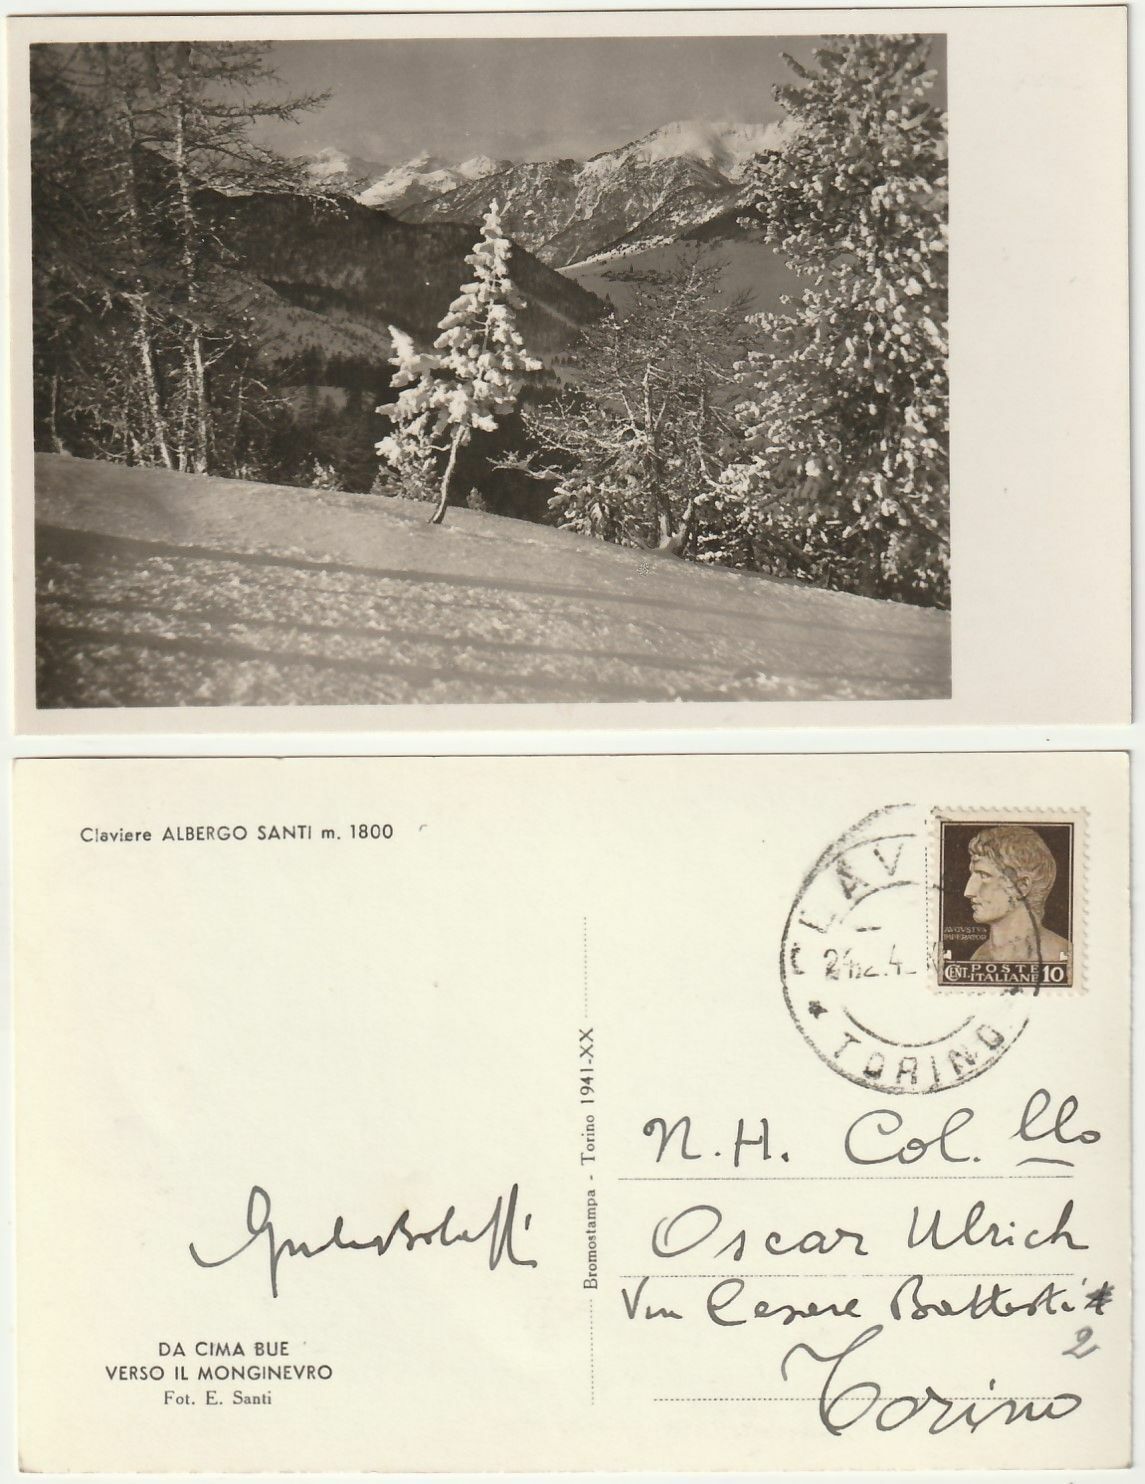 Claviere ALBERGO SANTI m. 1800
CLAV
24.2.4
TORINO
AVGVSTVS
IMPERATOR
CENT. POSTE ITALIANE 10
Bromostampa - Torino 1941-XX
N.H. Col. llo
Oscar Ulrich
Via Cesare Battisti
2
Torino
DA CIMA BUE
VERSO IL MONGINEVRO
Fot. E. Santi